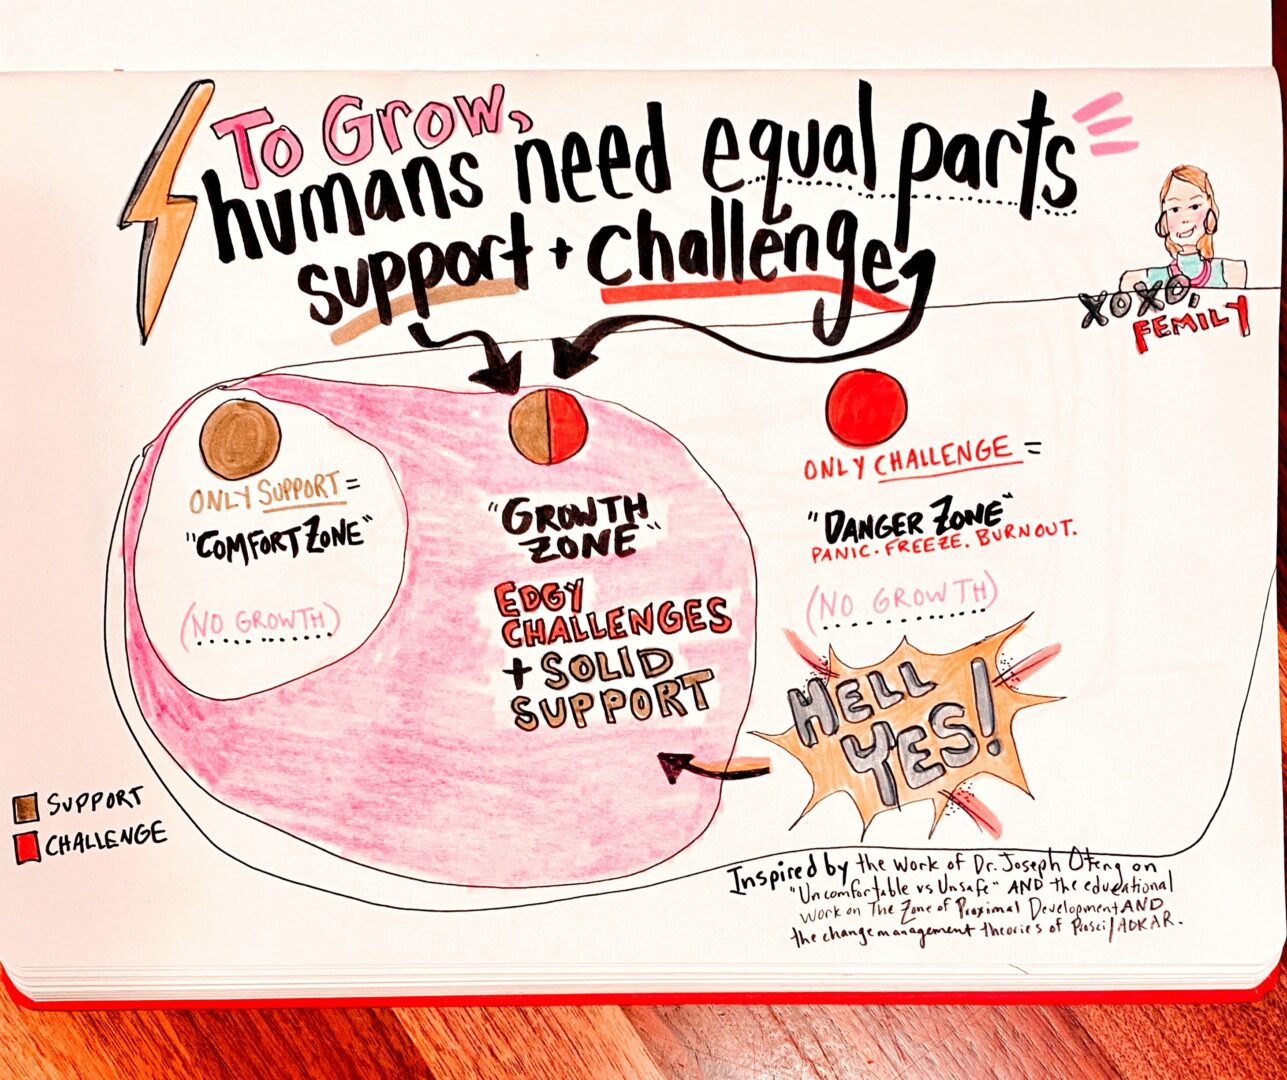 To Grow,
humans need equal parts
support + challenge
XOXO,
FEMILY
ONLY SUPPORT =
"COMFORT ZONE"
(NO GROWTH)
"GROWTH
ZONE"
EDGY
CHALLENGES
+ SOLID
SUPPORT
ONLY CHALLENGE =
"DANGER ZONE"
PANIC. FREEZE. BURNOUT.
(NO GROWTH)
HELL
YES!
SUPPORT
CHALLENGE
Inspired by the work of Dr. Joseph Oteng on
"Uncomfortable vs Unsafe" AND the educational
work on The Zone of Proximal Development AND
the change management theories of Prosci/ADKAR.